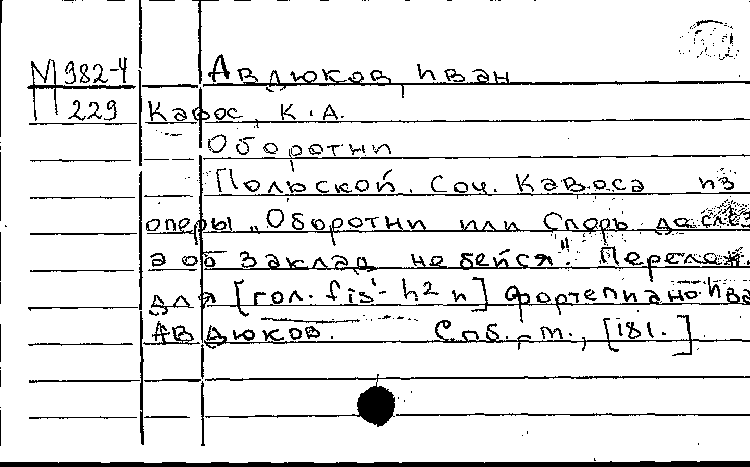 М 982-4 Авдюков, Иван
П 229 Кавос, К.А.
Оборотни
Польской. Соч. Кавоса из
оперы „Оборотни или Спорь до слез
а об заклад не бейся". Перелож.
для [гол. fis¹- h² и] фортепиано Ива
Авдюков. Спб., м., [181. ]